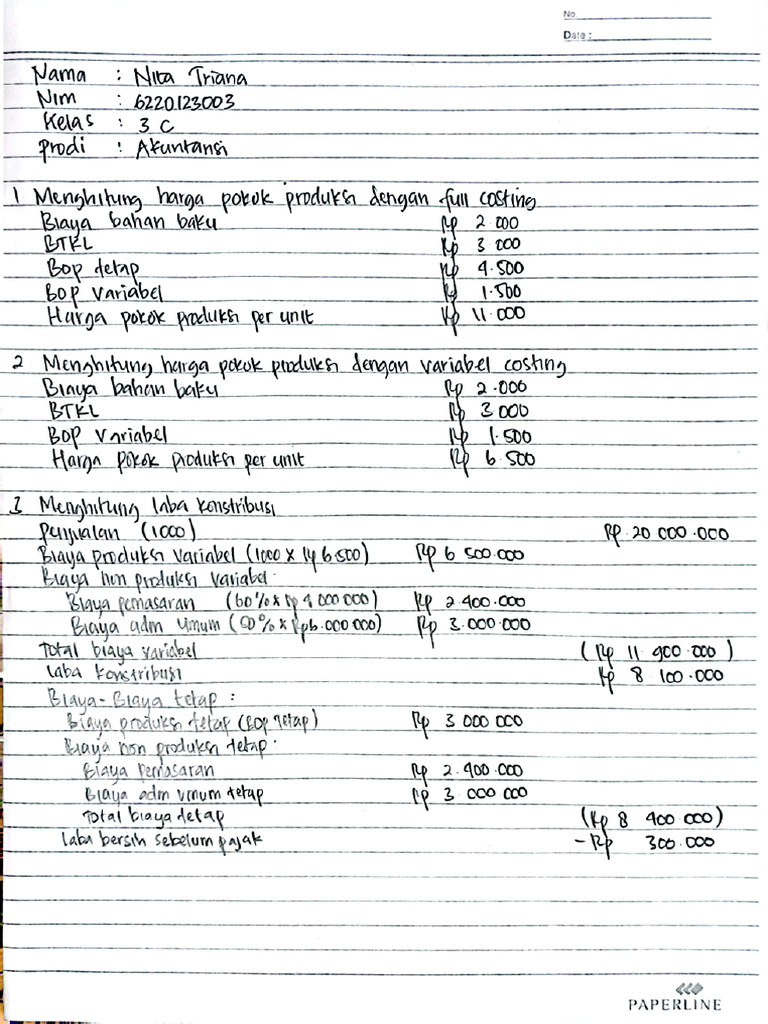 No
Date :
Nama : Nita Triana
Nim : 6220123003
Kelas : 3 C
prodi : Akuntansi
1 Menghitung harga pokok produksi dengan full costing
Biaya bahan baku Rp 2.000
BTKL Rp 3.000
Bop tetap Rp 4.500
Bop variabel Rp 1.500
Harga pokok produksi per unit Rp 11.000
2 Menghitung harga pokok produksi dengan variabel costing
Biaya bahan baku Rp 2.000
BTKL Rp 3.000
BOP variabel Rp 1.500
Harga pokok produksi per unit Rp 6.500
3 Menghitung laba konstribusi
penjualan (1000) Rp 20.000.000
Biaya produksi variabel (1000 x Rp 6.500) Rp 6.500.000
Biaya non produksi variabel:
Biaya pemasaran (60% x Rp 4.000.000) Rp 2.400.000
Biaya adm umum (50% x Rp6.000.000) Rp 3.000.000
Total biaya variabel (Rp 11.900.000)
laba konstribusi Rp 8.100.000
Biaya-Biaya tetap :
Biaya produksi tetap (BOP Tetap) Rp 3.000.000
Biaya non produksi tetap:
Biaya pemasaran Rp 2.400.000
Biaya adm umum tetap Rp 3.000.000
Total biaya tetap (Rp 8.400.000)
laba bersih sebelum pajak - Rp 300.000
PAPERLINE